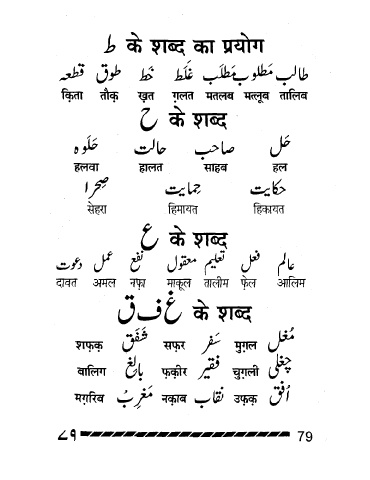 ط के शब्द का प्रयोग
طالب مطلوب مطلب غلط خط طوق قطعہ
क़िता तौक़ ख़त ग़लत मतलब मत्लूब तालिब
ح के शब्द
حل صاحب حالت حلوہ
हलवा हालत साहब हल
حکایت حمایت صحرا
सेहरा हिमायत हिकायत
ع के शब्द
عالم فعل تعلیم معقول نفع عمل دعوت
दावत अमल नफ़ा माकूल तालीम फ़ेल आलिम
غ ف ق के शब्द
शफ़क़ شفق सफ़र سفر मुग़ल مغل
वालिग بالغ फ़क़ीर فقیر चुग़ली چغلی
मग़रिब مغرب नक़ाब نقاب उफ़क़ افق
७९ 79